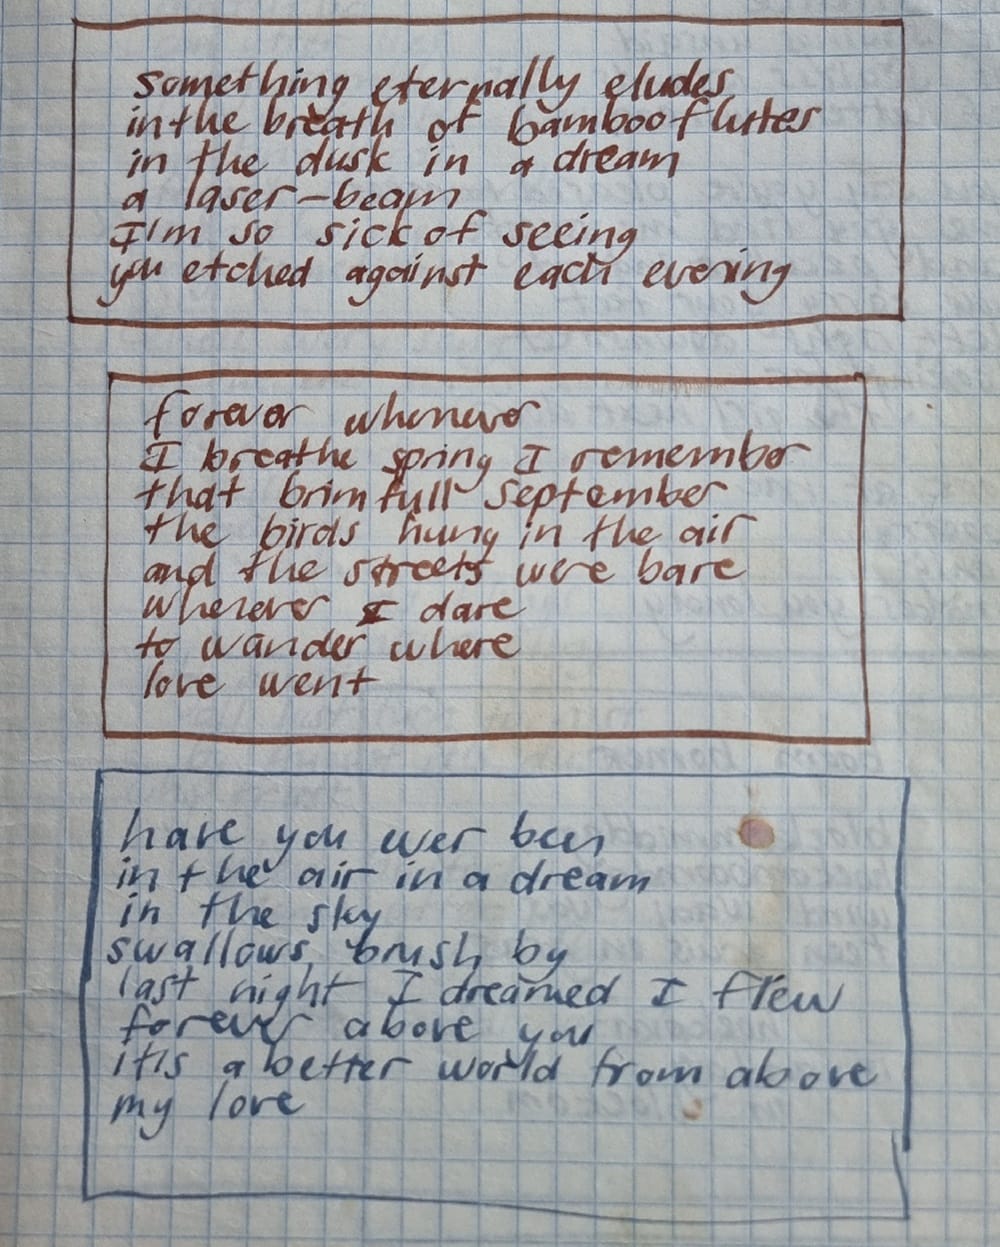 something eternally eludes
in the breath of bamboo flutes
in the dusk in a dream
a laser-beam
I'm so sick of seeing
you etched against each evening
forever whenever
I breathe spring I remember
that brimfull september
the birds hung in the air
and the streets were bare
wherever I dare
to wander where
love went
have you ever been
in the air in a dream
in the sky
swallows brush by
last night I dreamed I flew
forever above you
it's a better world from above
my love